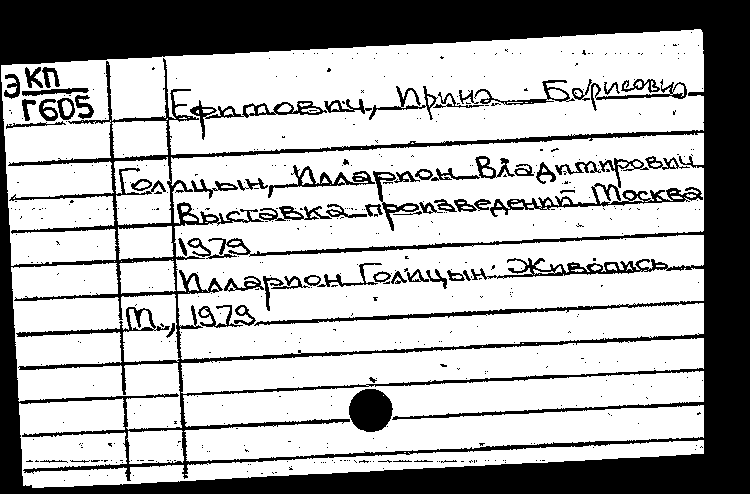 Э КП
Г605
Ефимович, Ирина Борисовна
Голицын, Илларион Владимирович
Выставка произведений. Москва
1979
Илларион Голицын: Живопись
М., 1979